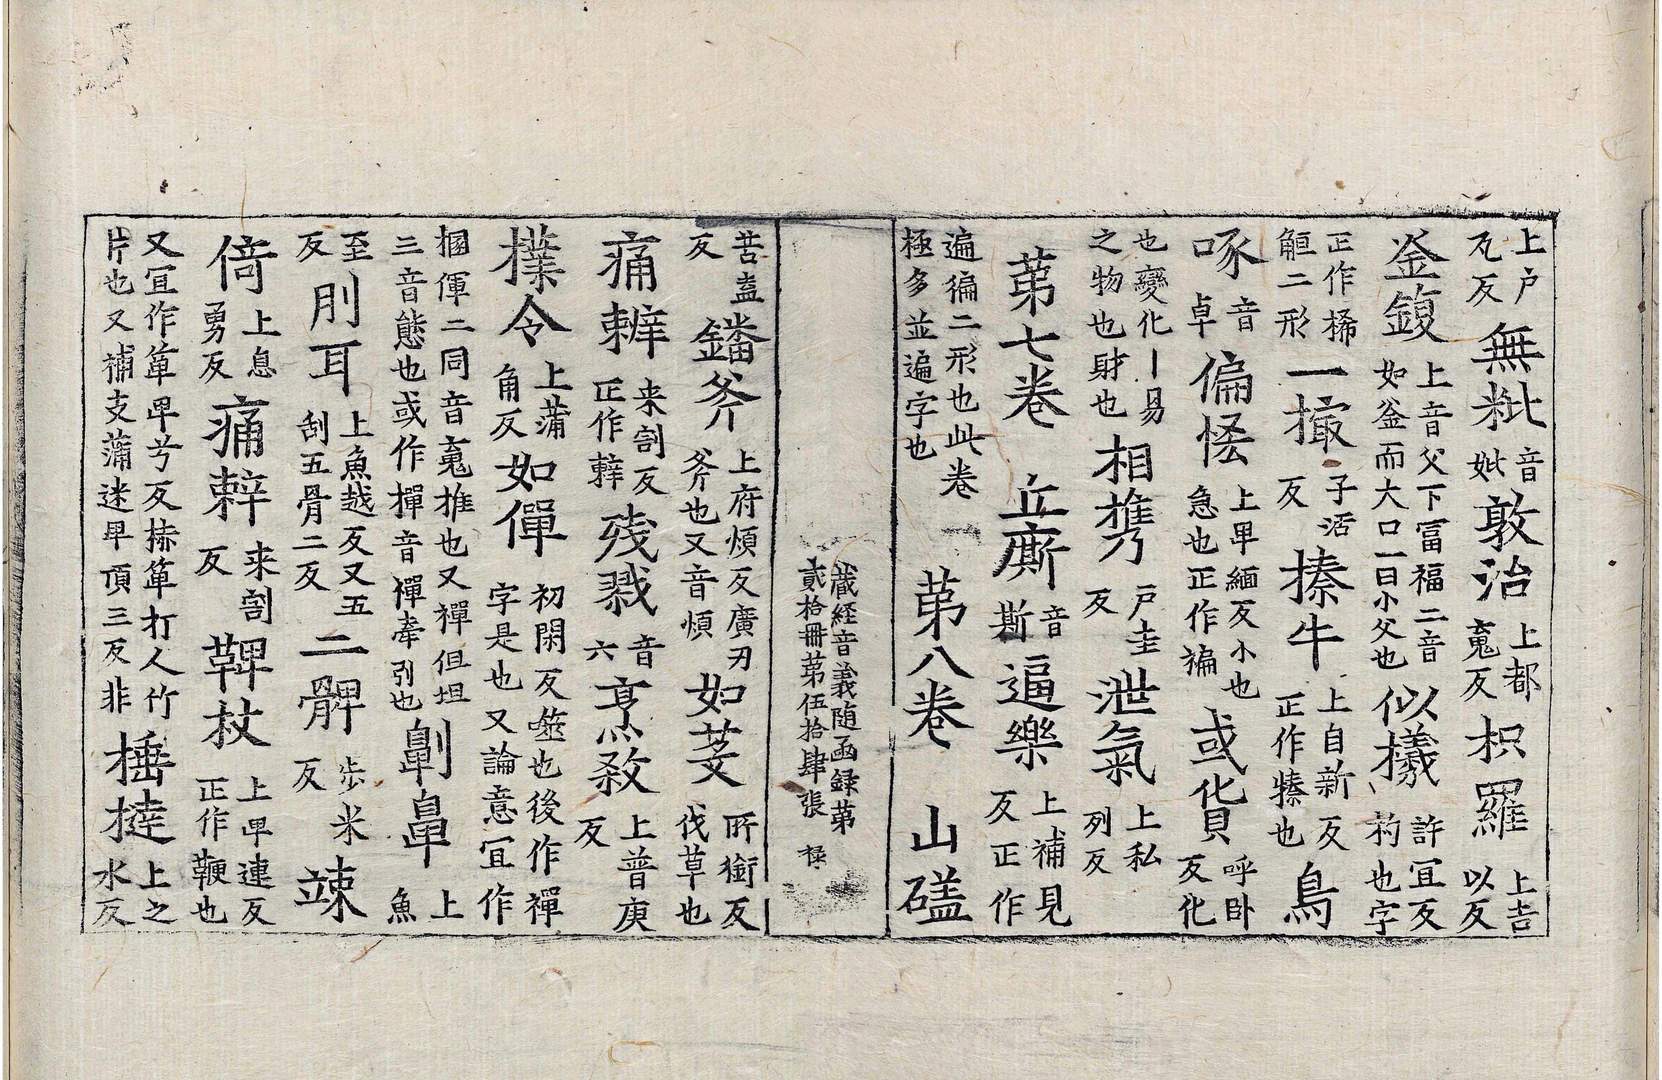 上戶瓦反無粃音妣敦治上都䰟反枳羅上吉以反
釜鍑上音父下冨福二音如釜而大口一曰小父也似㩘許宜反杓也字
正作桸䚂二形一撮子活反搸牛上自新反正作㮈也鳥
啄音卓偏恡上卑緬反小也急也正作褊或貨呼卧反化
也變化丨易之物也財也相㩗戶圭反泄氣上私列反
第七卷 丘廝音斯逼樂上補見反正作
遍徧二形也此卷極多並遍字也 第八卷 山礚
藏経音義随函録第
貳拾冊第伍拾肆張 禄
苦盍反鐇斧上府煩反廣刃斧也又音煩如芟所銜反伐草也
痛辢来割反正作辢殘戮音六烹煞上普庚反
㩧令上蒲角反如僤初閑反筮也後作禫字是也又論意宜作
掴僤二同音䰟推也又禫但坦三音態也或作撣音禪牽引也劓鼻上魚
至反刖耳上魚越反又五刮五骨二反二髀步米反竦
倚上息勇反痛辢来割反鞞杖上卑連反正作鞭也
又宜作箄卑兮反箄打人竹片也又補支蒲迷卑頂三反非捶撻上之水反